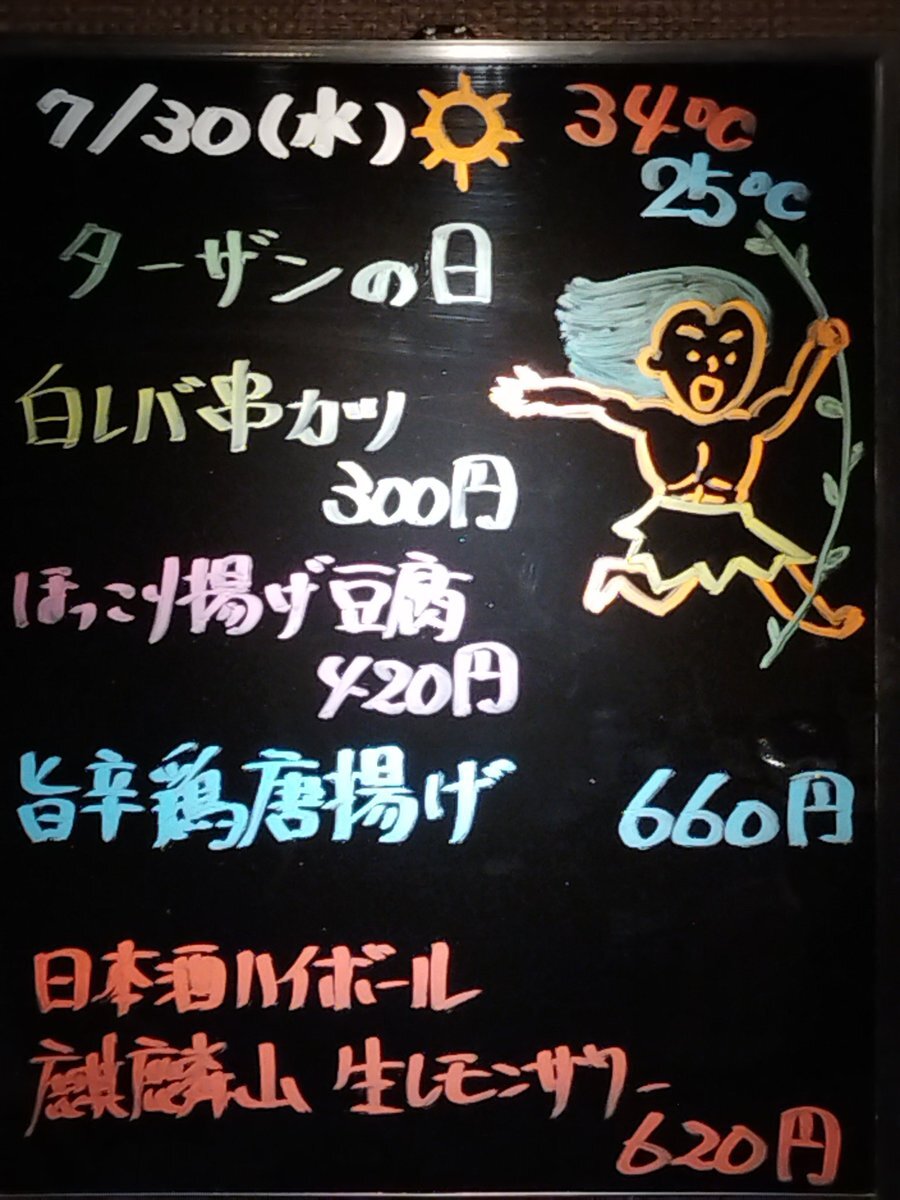 7/30(水) 34℃
25℃
ターザンの日
白レバ串カツ
300円
ほっこり揚げ豆腐
420円
旨辛鶏唐揚げ 660円
日本酒ハイボール
麒麟山 生レモンサワー
620円